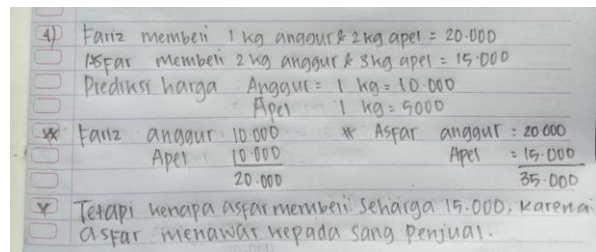 4) Fariz membeli 1 kg anggur & 2 kg apel = 20.000
Asfar membeli 2 kg anggur & 3 kg apel = 15.000
Prediksi harga Anggur = 1 kg = 10.000
Apel 1 kg = 5000
* Fariz anggur 10.000 * Asfar anggur : 20 000
Apel 10.000 Apel = 15.000
20.000 35.000
* Tetapi kenapa asfar membeli seharga 15.000, karena
asfar menawar kepada sang penjual.